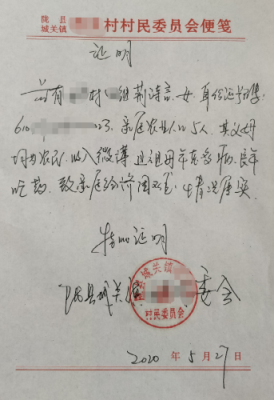 陇县
城关镇 村村民委员会便笺
证明
兹有 村 组荆诗言，女，身份证号码：
610 03，家庭农业人口5人，其父母
均为农民，收入微薄，
吃药，致家庭经济困难，情况属实
特此证明
陇县城关镇 委会
村民委员会
2020 年 5 月 27 日